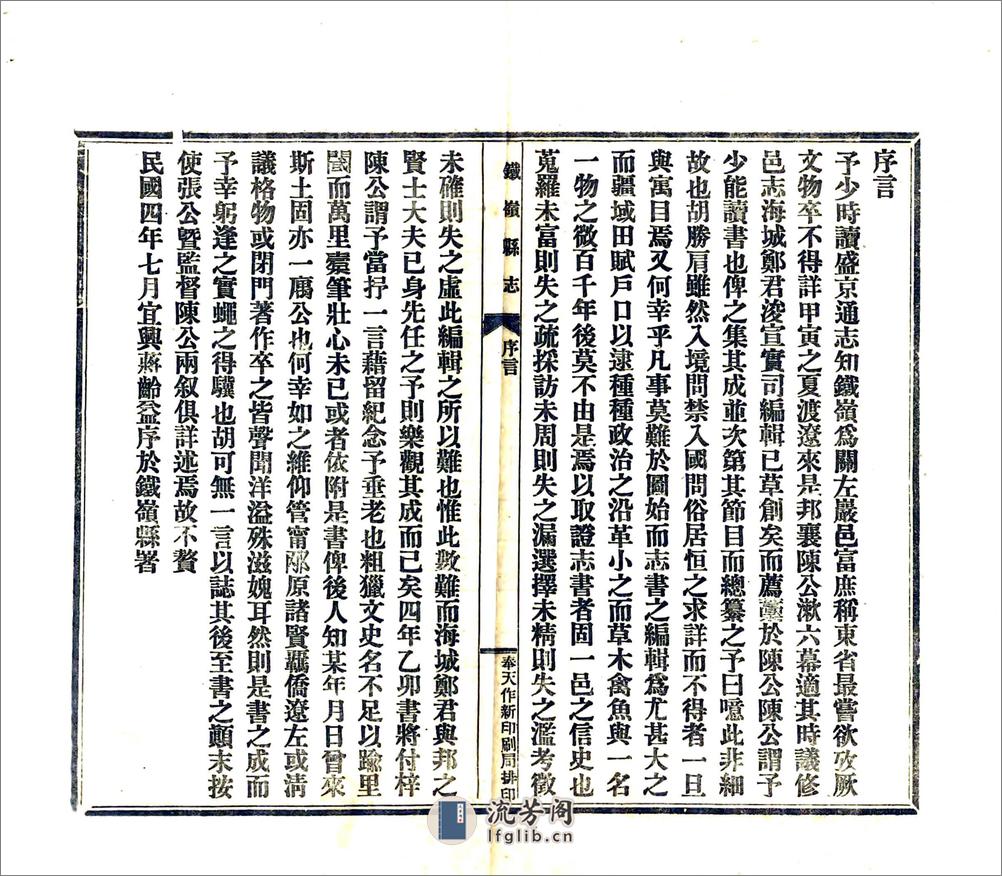 序言
予少時讀盛京通志知鐵嶺爲關左巖邑富庶稱東省最嘗欲攷厥
文物卒不得詳甲寅之夏渡遼來是邦襄陳公漱六幕適其時議修
邑志海城鄭君浚宣實司編輯已草創矣而薦薰於陳公陳公謂予
少能讀書也俾之集其成並次第其節目而總纂之予曰噫此非細
故也胡勝肩雖然入境問禁入國問俗居恒之求詳而不得者一旦
與寓目焉又何幸乎凡事莫難於圖始而志書之編輯爲尤甚大之
而疆域田賦戶口以逮種種政治之沿革小之而草木禽魚與一名
一物之微百千年後莫不由是焉以取證志書者固一邑之信史也
蒐羅未富則失之疏採訪未周則失之漏選擇未精則失之濫考徵
鐵嶺縣志
序言
奉天作新印刷局排印
未確則失之虛此編輯之所以難也惟此數難而海城鄭君與邦之
賢士大夫已身先任之予則樂觀其成而已矣四年乙卯書將付梓
陳公謂予當抒一言藉留紀念予垂老也粗獵文史名不足以踰里
閭而萬里橐筆壯心未已或者依附是書俾後人知某年月日曾來
斯土固亦一廡公也何幸如之維仰管甯邴原諸賢羈僑遼左或淸
議格物或閉門著作卒之皆聲聞洋溢殊滋媿耳然則是書之成而
予幸躬逢之實蠅之得驥也胡可無一言以誌其後至書之顚末按
使張公暨監督陳公兩叙俱詳述焉故不贅
民國四年七月宜興蔣齡益序於鐵嶺縣署
流芳阁
lfglib.cn